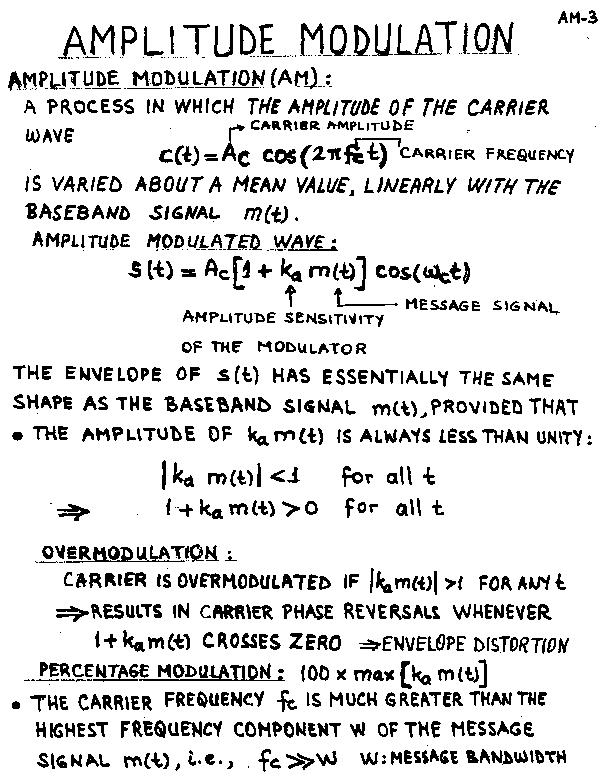 AM-3
AMPLITUDE MODULATION
AMPLITUDE MODULATION (AM):
A PROCESS IN WHICH THE AMPLITUDE OF THE CARRIER
WAVE
CARRIER AMPLITUDE
c(t) = Ac cos(2πfct) CARRIER FREQUENCY
IS VARIED ABOUT A MEAN VALUE, LINEARLY WITH THE
BASEBAND SIGNAL m(t).
AMPLITUDE MODULATED WAVE:
S(t) = Ac[1 + ka m(t)] cos(ωct)
MESSAGE SIGNAL
AMPLITUDE SENSITIVITY
OF THE MODULATOR
THE ENVELOPE OF s(t) HAS ESSENTIALLY THE SAME
SHAPE AS THE BASEBAND SIGNAL m(t), PROVIDED THAT
• THE AMPLITUDE OF ka m(t) IS ALWAYS LESS THAN UNITY:
|ka m(t)| < 1 for all t
⇒ 1 + ka m(t) > 0 for all t
OVERMODULATION:
CARRIER IS OVERMODULATED IF |ka m(t)| > 1 FOR ANY t
⇒ RESULTS IN CARRIER PHASE REVERSALS WHENEVER
1 + ka m(t) CROSSES ZERO ⇒ ENVELOPE DISTORTION
PERCENTAGE MODULATION: 100 × max [ka m(t)]
• THE CARRIER FREQUENCY fc IS MUCH GREATER THAN THE
HIGHEST FREQUENCY COMPONENT W OF THE MESSAGE
SIGNAL m(t), i.e., fc ≫ W W: MESSAGE BANDWIDTH